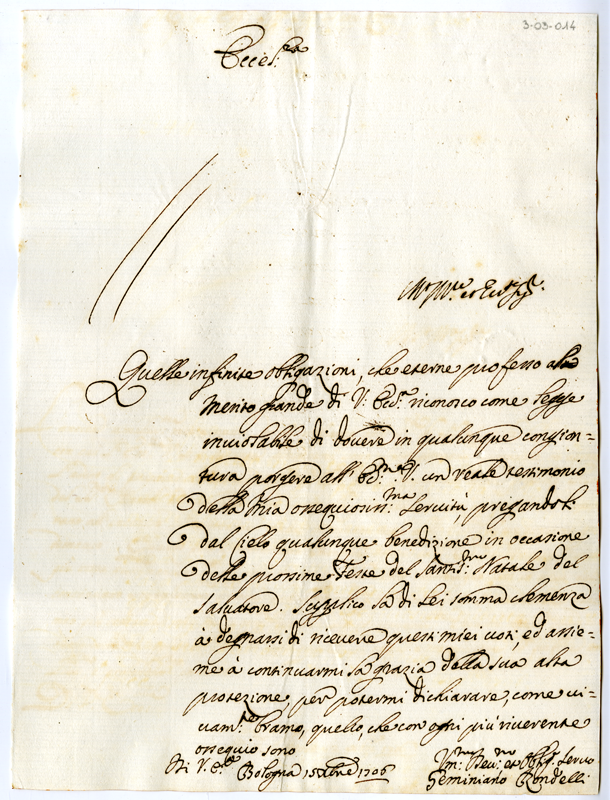 3-03-014
Eccel.za
Ill.mo et Ecc.mo Sig.re
Quelle infinite obbligazioni, che eterne professo al
Merito grande di V. Ecc.a riconosco come legge
inviolabile di dovere in qualunque congion=
tura porgere all' Ecc.a V. un reale testimonio
della mia ossequiosiss.ma servitù, pregandoli
dal Cielo qualunque benedizione in occasione
delle prossime Feste del Santis.mo Natale del
Salvatore. Supplico la di Lei somma clemenza
à degnarsi di ricevere questi miei voti, ed assie=
me à continuarmi la grazia della sua alta
protezione, per potermi dichiarare, come vi=
vam.te bramo, quello, che con ogni più riverente
ossequio sono
Di V. E.za Bologna 15 Xbre 1706
Um.mo Dev.mo et Obbl. Servo
Geminiano Rondelli